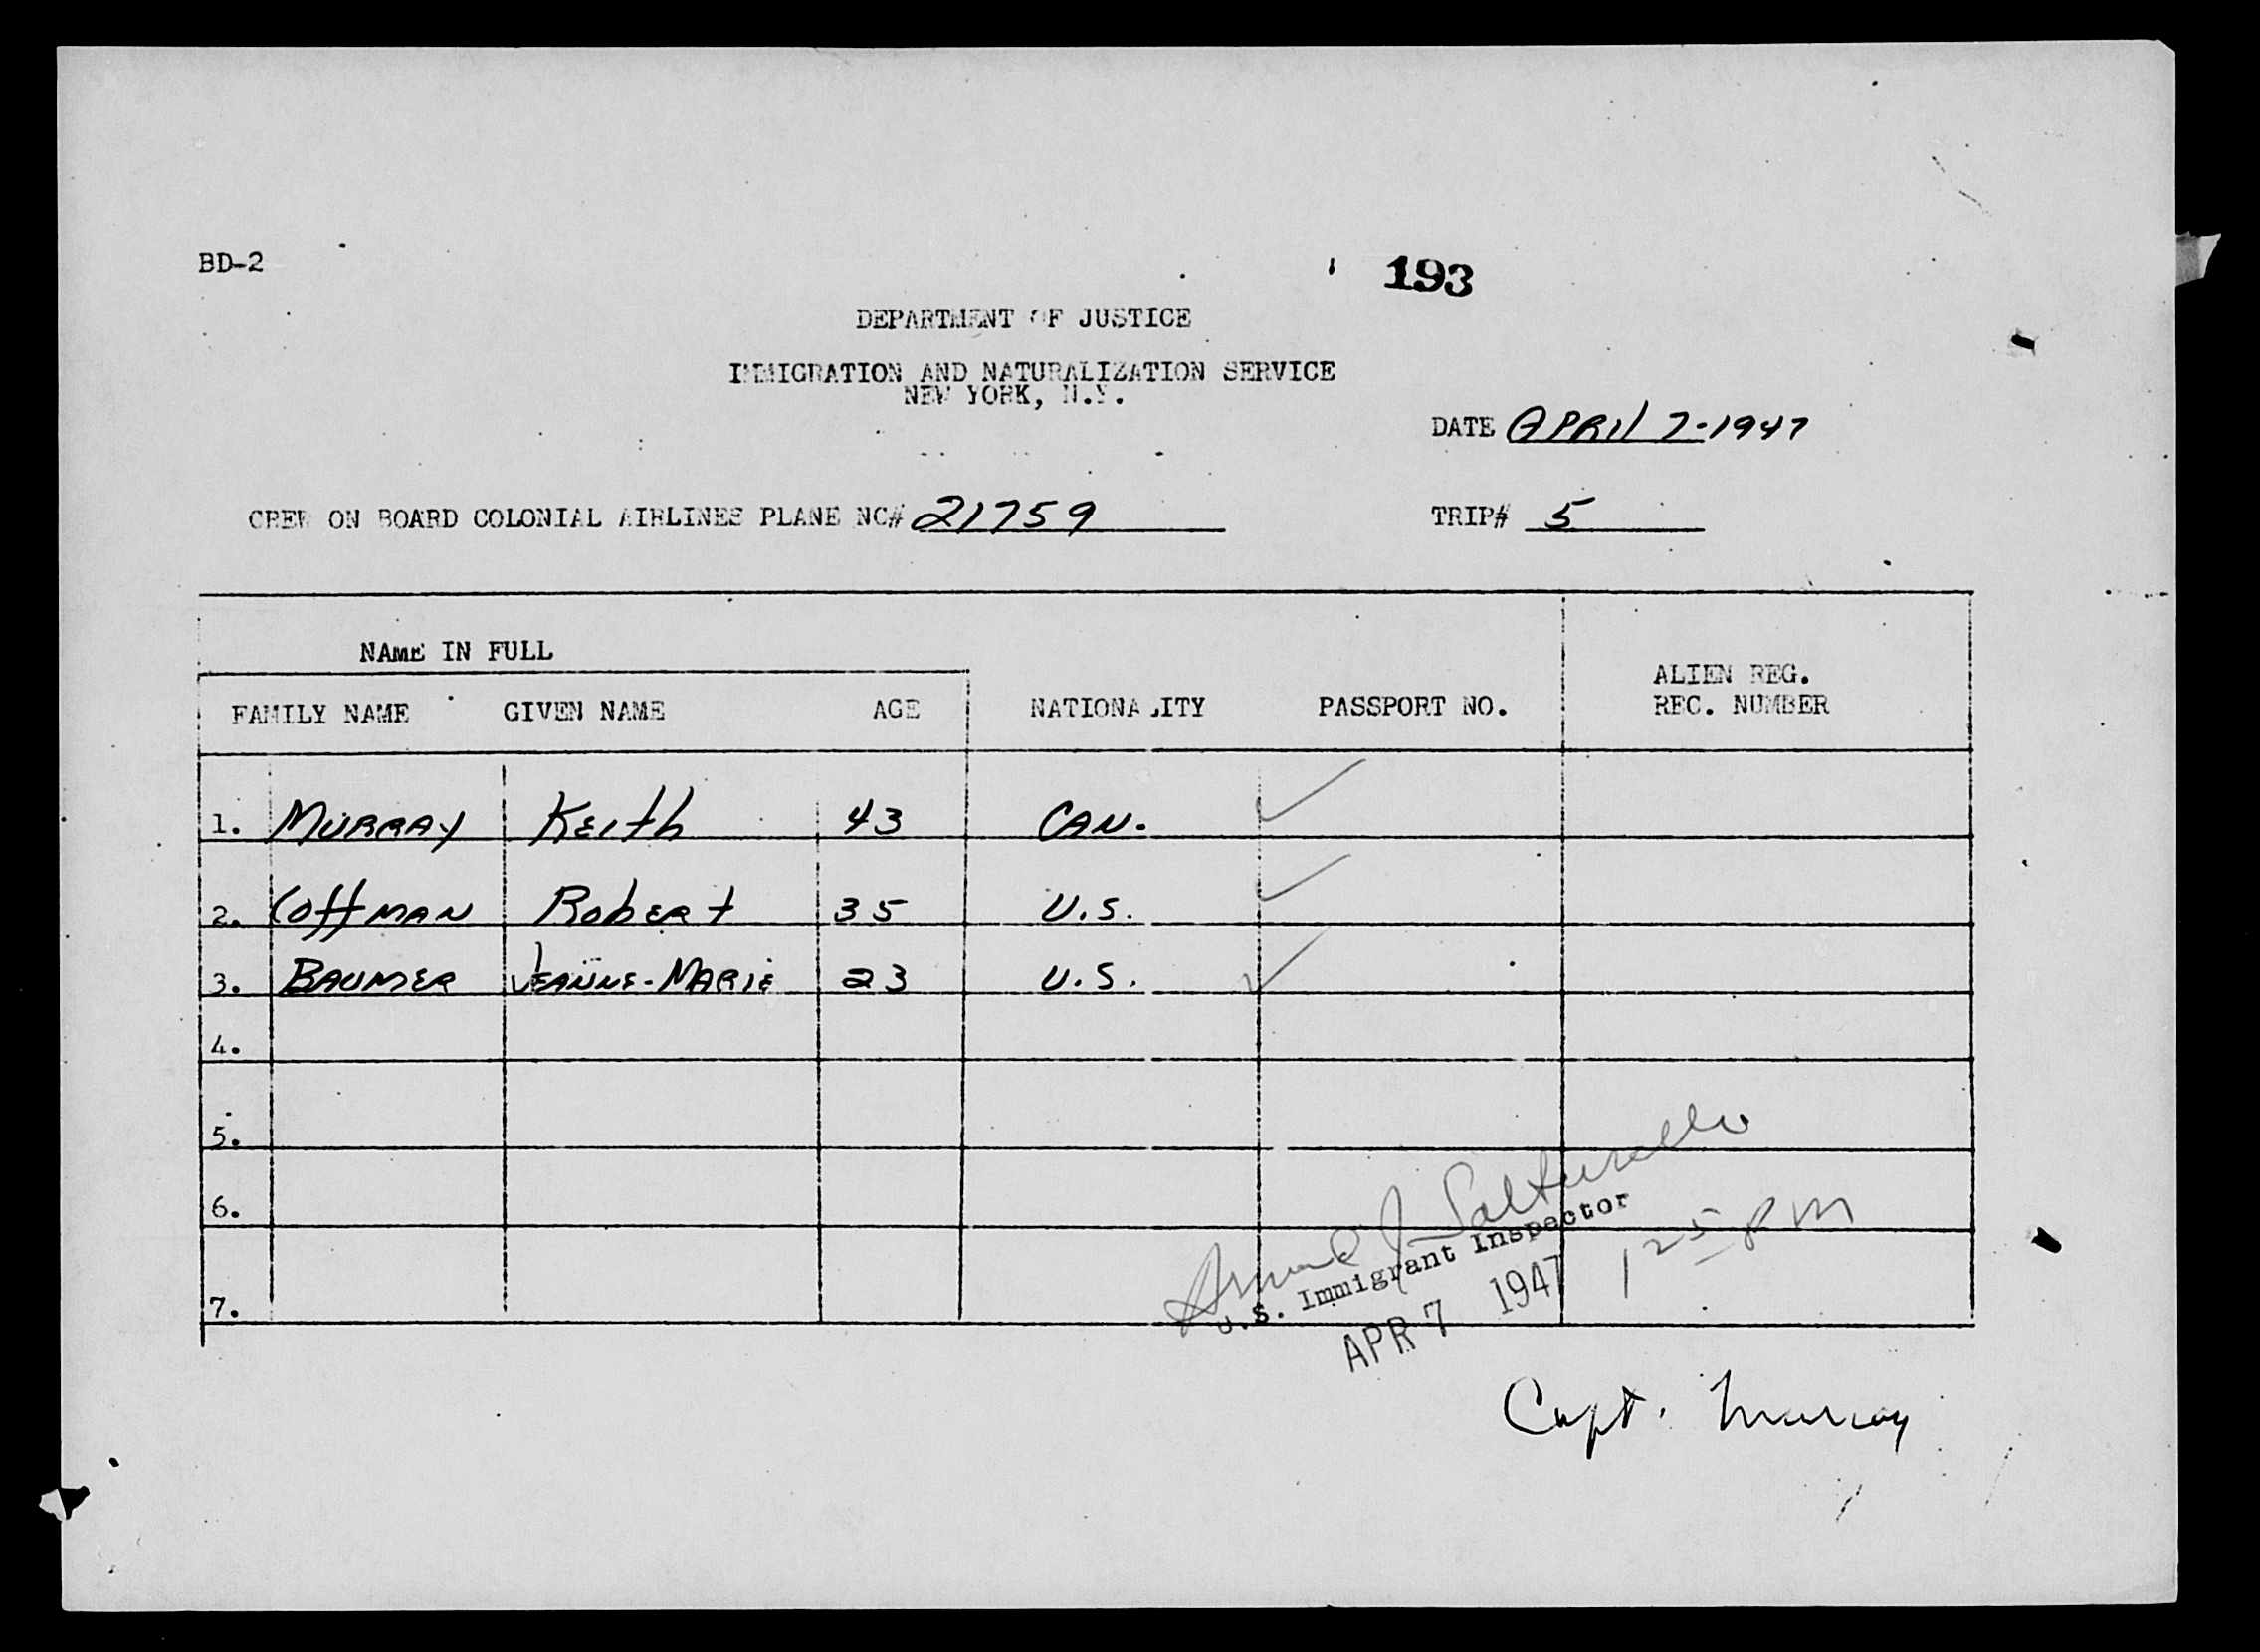 BD-2
193
DEPARTMENT OF JUSTICE
IMMIGRATION AND NATURALIZATION SERVICE
NEW YORK, N.Y.
DATE APRil 7-1947
CREW ON BOARD COLONIAL AIRLINES PLANE NC# 21759 TRIP# 5
NAME IN FULL
ALIEN REG.
FAMILY NAME GIVEN NAME AGE NATIONALITY PASSPORT NO. REC. NUMBER
1. MURRAY KEith 43 CAN.
2. CoffMAN RobERt 35 U.S.
3. BAUMER JEANNE-MARiE 23 U.S.
4.
5.
6.
7.
J.
U.S. Immigrant Inspector
APR 7 1947
1 25 PM
Capt. Murray